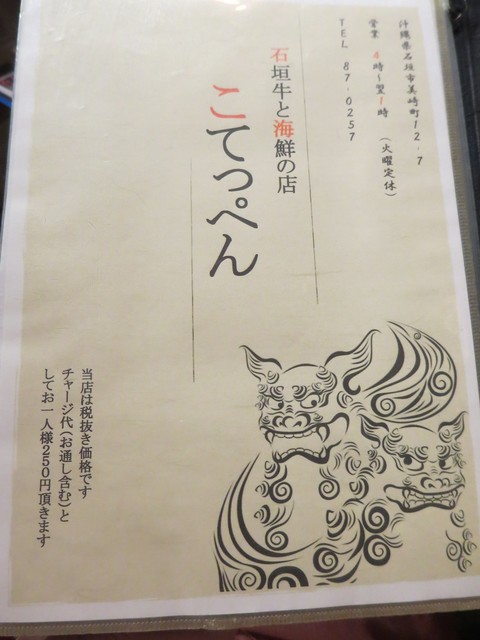 沖縄県石垣市美崎町12-7
営業 4時～翌1時 (火曜定休)
TEL 87-0257
石垣牛と海鮮の店
こてっぺん
当店は税抜き価格です
チャージ代(お通し含む)と
してお一人様250円頂きます